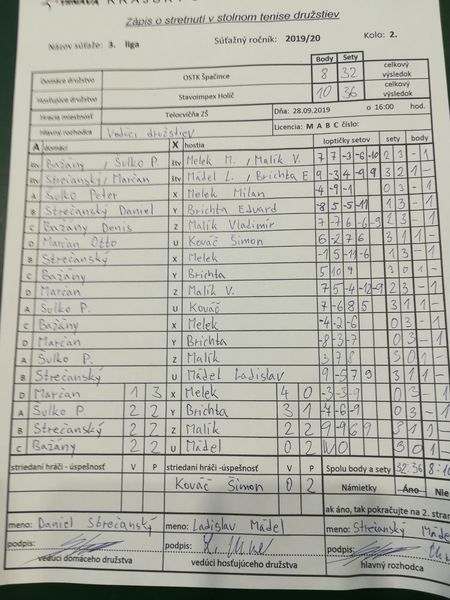 Zápis o stretnutí v stolnom tenise družstiev
Názov súťaže: 3. liga Súťažný ročník: 2019/20 Kolo: 2.
Body Sety
Domáce družstvo OSTK Špačince 8 32 celkový výsledok
Hosťujúce družstvo Stavoimpex Holíč 10 36 celkový výsledok
Hracia miestnosť Telocvičňa ZŠ Dňa: 28.09.2019 o 16:00 hod.
hlavný rozhodca Vedúci družstiev Licencia: M A B C číslo:
A domáci X hostia loptičky setov sety body
štv Bažány, Šulko P štv Melek M., Malík V. 7 7 -3 -6 -10 2 3 - 1
štv Strečanský, Marčan štv Mádel L., Brichta E 9 -3 4 -9 9 3 2 1 -
A Šulko Peter X Melek Milan -4 -9 -1 0 3 - 1
B Strečanský Daniel Y Brichta Eduard -8 5 -5 -11 1 3 - 1
C Bažány Denis Z Malík Vladimír 7 -7 6 -6 -9 2 3 - 1
D Marčan Otto U Kováč Šimon 6 -2 7 6 3 1 1 -
B Strečanský X Melek -1 5 -11 -6 1 3 - 1
C Bažány Y Brichta 5 10 9 3 0 1 -
D Marčan Z Malík V. 7 5 -4 -12 -9 2 3 - 1
A Šulko P. U Kováč 7 -6 8 5 3 1 1 -
C Bažány X Melek -4 -2 -6 0 3 - 1
D Marčan Y Brichta -8 -3 -7 0 3 - 1
A Šulko P. Z Malík 3 7 8 3 0 1 -
B Strečanský U Mádel Ladislav 9 -5 7 9 3 1 1 -
D Marčan 1 3 X Melek 4 0 -3 -3 -9 0 3 - 1
A Šulko P. 2 2 Y Brichta 3 1 -7 -6 -9 0 3 - 1
B Strečanský 2 2 Z Malík 2 2 9 -9 6 9 3 1 1 -
C Bažány 2 2 U Mádel 0 2 WO 3 0 1 -
striedaní hráči - úspešnosť V P striedaní hráči -úspešnosť V P Spolu body a sety 32:36 8:10
Kováč Šimon 0 2 Námietky Áno Nie
ak áno, tak pokračujte na 2. stran
meno: Daniel Strečanský meno: Ladislav Mádel Strečanský Máde
podpis: podpis: podpis:
vedúci domáceho družstva vedúci hosťujúceho družstva hlavný rozhodca